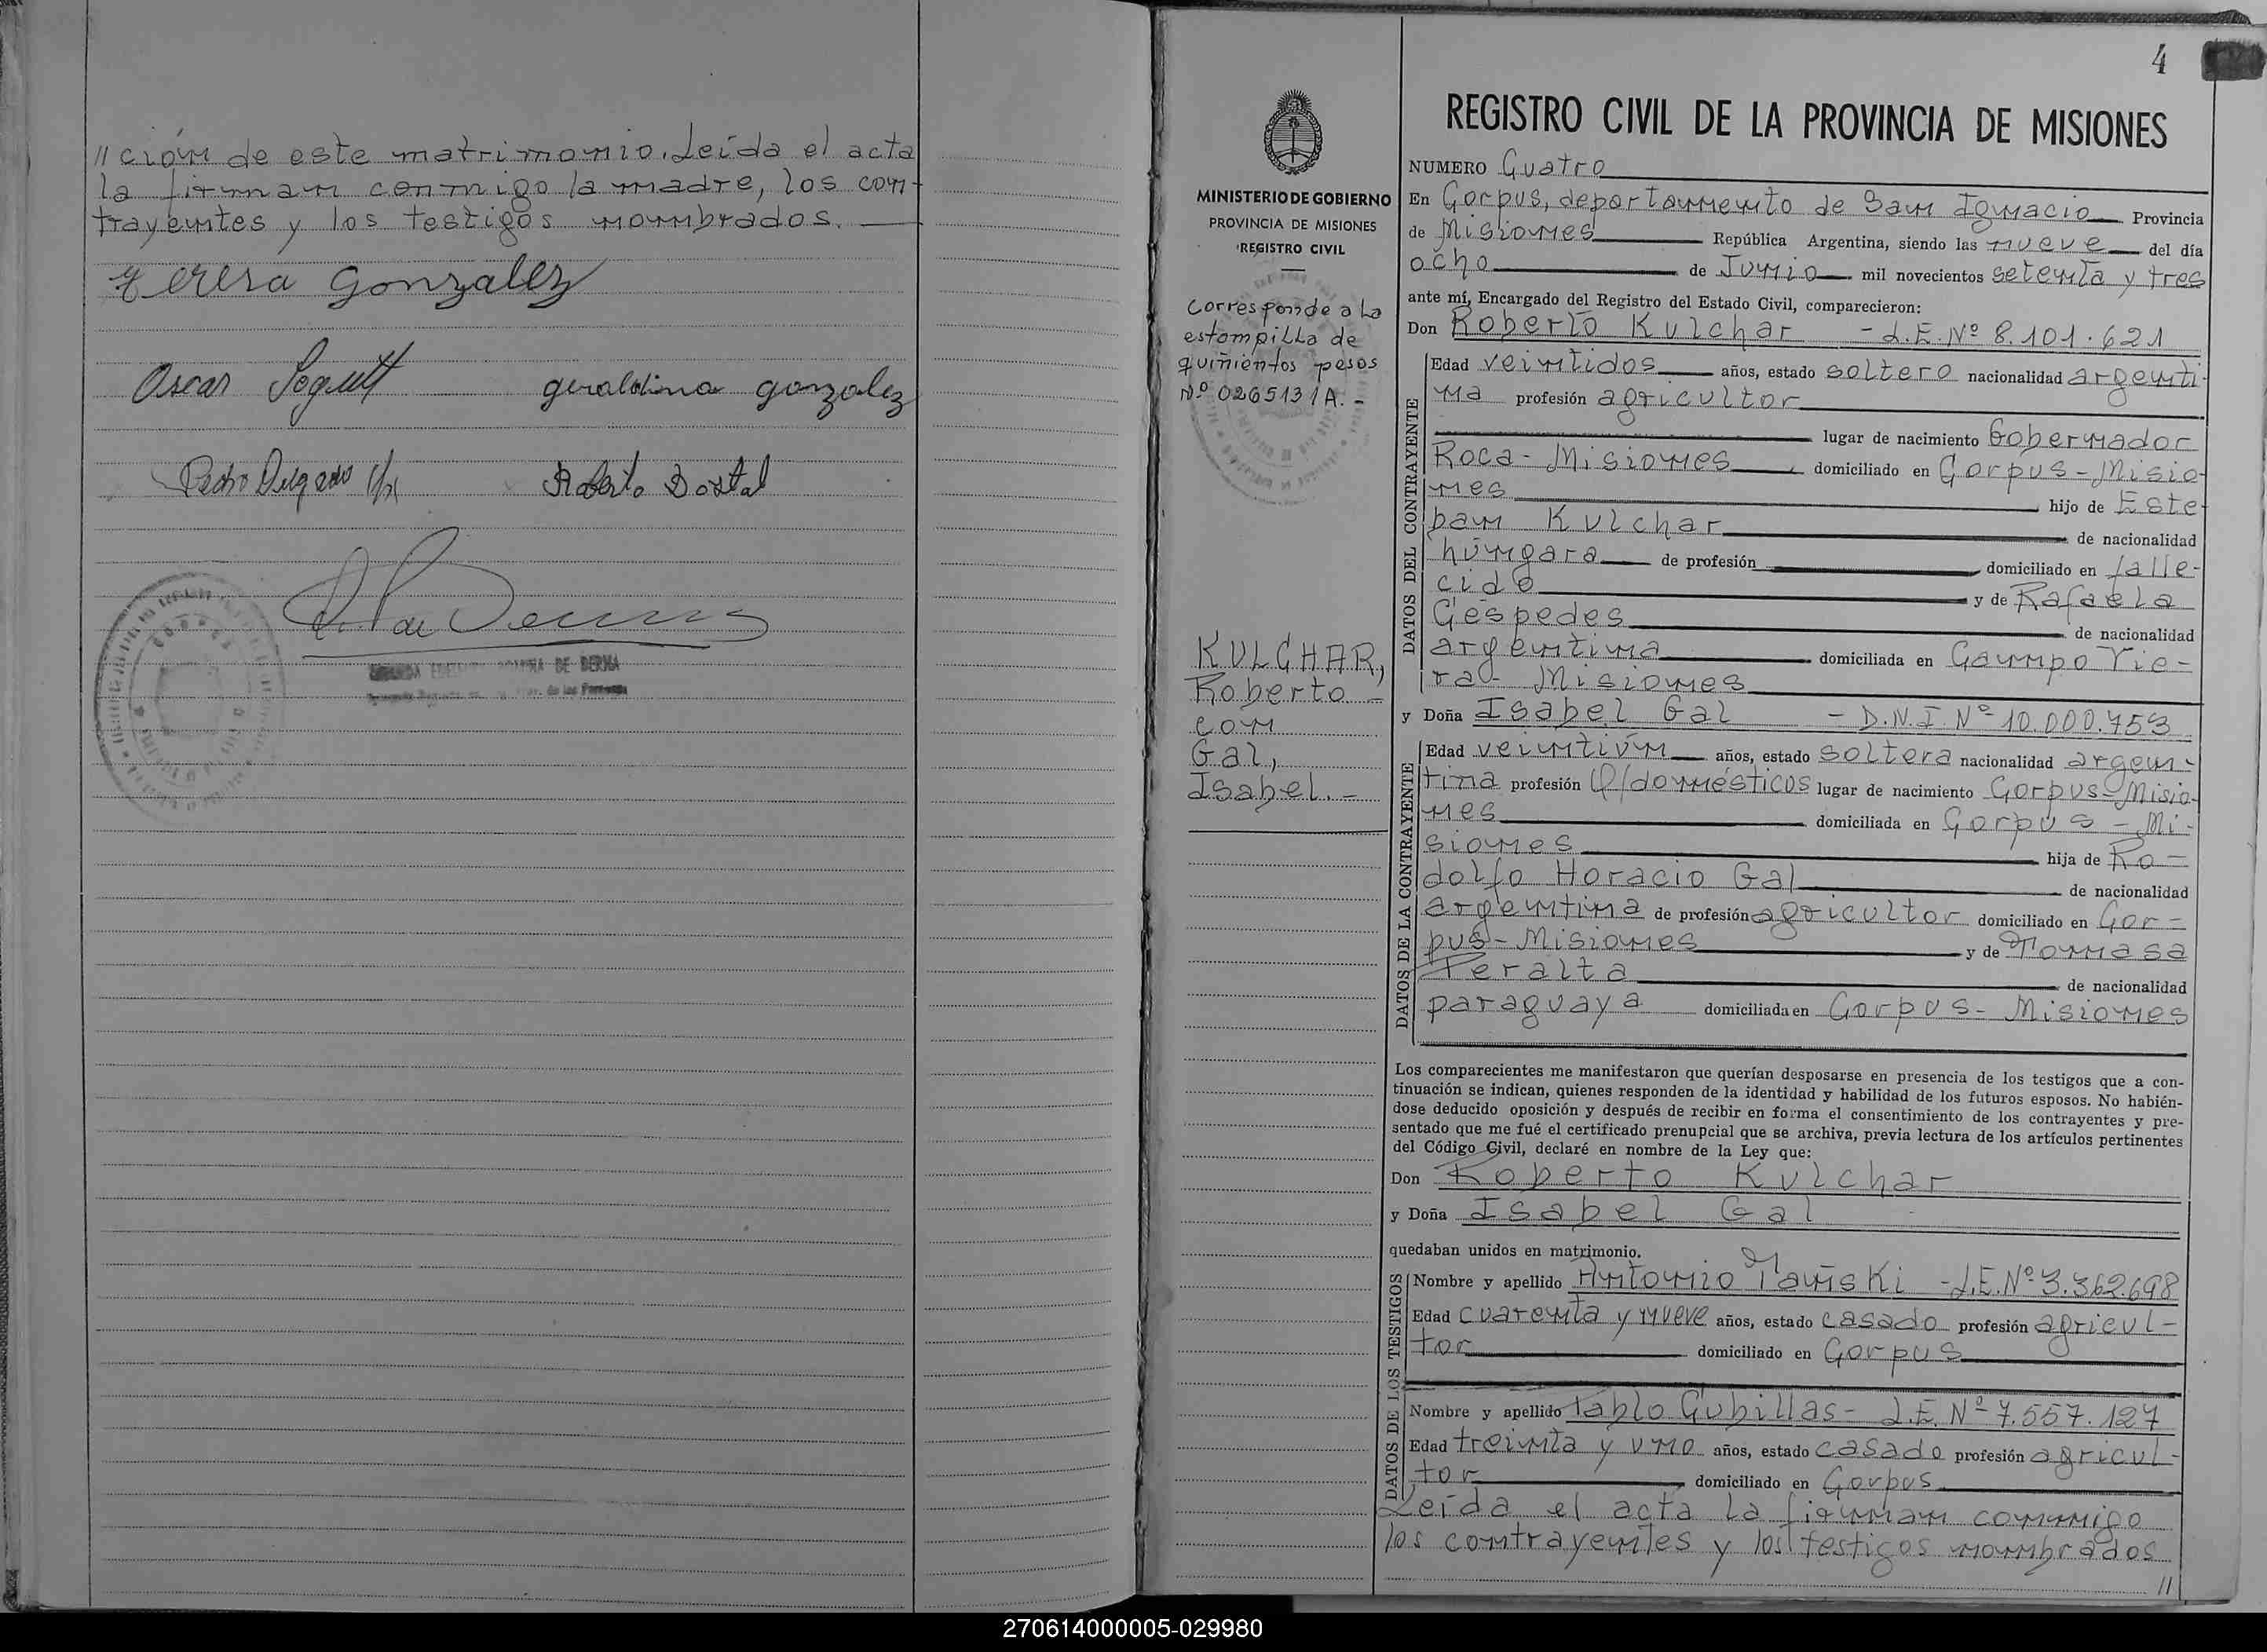 //ción de este matrimonio. Leída el acta
la firman conmigo la madre, los con-
trayentes y los testigos nombrados.
Teresa Gonzalez
Oscar
geraldina gonzalez
Pedro Delgado
Roberto Dostal
DE BERNA
4
REGISTRO CIVIL DE LA PROVINCIA DE MISIONES
MINISTERIO DE GOBIERNO
PROVINCIA DE MISIONES
REGISTRO CIVIL
Corresponde a la
estampilla de
quinientos pesos
Nº 0265131A.-
KULCHAR,
Roberto
con
Gal,
Isabel.-
NUMERO Cuatro
En Corpus, departamento de San Ignacio Provincia
de Misiones República Argentina, siendo las nueve del día
ocho de Junio mil novecientos setenta y tres
ante mí, Encargado del Registro del Estado Civil, comparecieron:
Don Roberto Kulchar - L.E. Nº 8.101.621
DATOS DEL CONTRAYENTE
Edad veintidos años, estado soltero nacionalidad argenti-
na profesión agricultor
lugar de nacimiento Gobernador
Roca - Misiones domiciliado en Corpus - Misio-
nes hijo de Este-
ban Kulchar de nacionalidad
húngara de profesión domiciliado en falle-
cido y de Rafaela
Céspedes de nacionalidad
argentina domiciliada en Campo Vie-
ra - Misiones
y Doña Isabel Gal - D.N.I. Nº 10.000.753
DATOS DE LA CONTRAYENTE
Edad veintiún años, estado soltera nacionalidad argen-
tina profesión Q/domésticos lugar de nacimiento Corpus - Misio-
nes domiciliada en Corpus - Mi-
siones hija de Ro-
dolfo Horacio Gal de nacionalidad
argentina de profesión agricultor domiciliado en Cor-
pus - Misiones y de Tomasa
Peralta de nacionalidad
paraguaya domiciliada en Corpus - Misiones
Los comparecientes me manifestaron que querían desposarse en presencia de los testigos que a con-
tinuación se indican, quienes responden de la identidad y habilidad de los futuros esposos. No habién-
dose deducido oposición y después de recibir en forma el consentimiento de los contrayentes y pre-
sentado que me fué el certificado prenupcial que se archiva, previa lectura de los artículos pertinentes
del Código Civil, declaré en nombre de la Ley que:
Don Roberto Kulchar
y Doña Isabel Gal
quedaban unidos en matrimonio.
DATOS DE LOS TESTIGOS
Nombre y apellido Antonio - L.E. Nº 3.362.698
Edad cuarenta y nueve años, estado casado profesión agricul-
tor domiciliado en Corpus
Nombre y apellido Pablo Cubillas - L.E. Nº 7.557.127
Edad treinta y uno años, estado casado profesión agricul-
tor domiciliado en Corpus
Leída el acta la firman conmigo
los contrayentes y los testigos nombrados
//
270614000005-029980